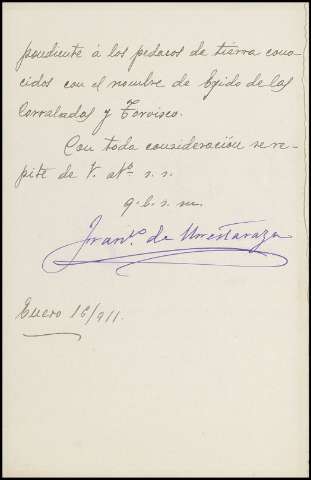 pondiente á los pedazos de tierra cono-
cidos con el nombre de Egido de las
Corraladas y Torvisco.
Con toda consideración se re-
pite de V. atº s. s.
q. b. s. m.
Franco. de Urrestarazu
Enero 16/911.